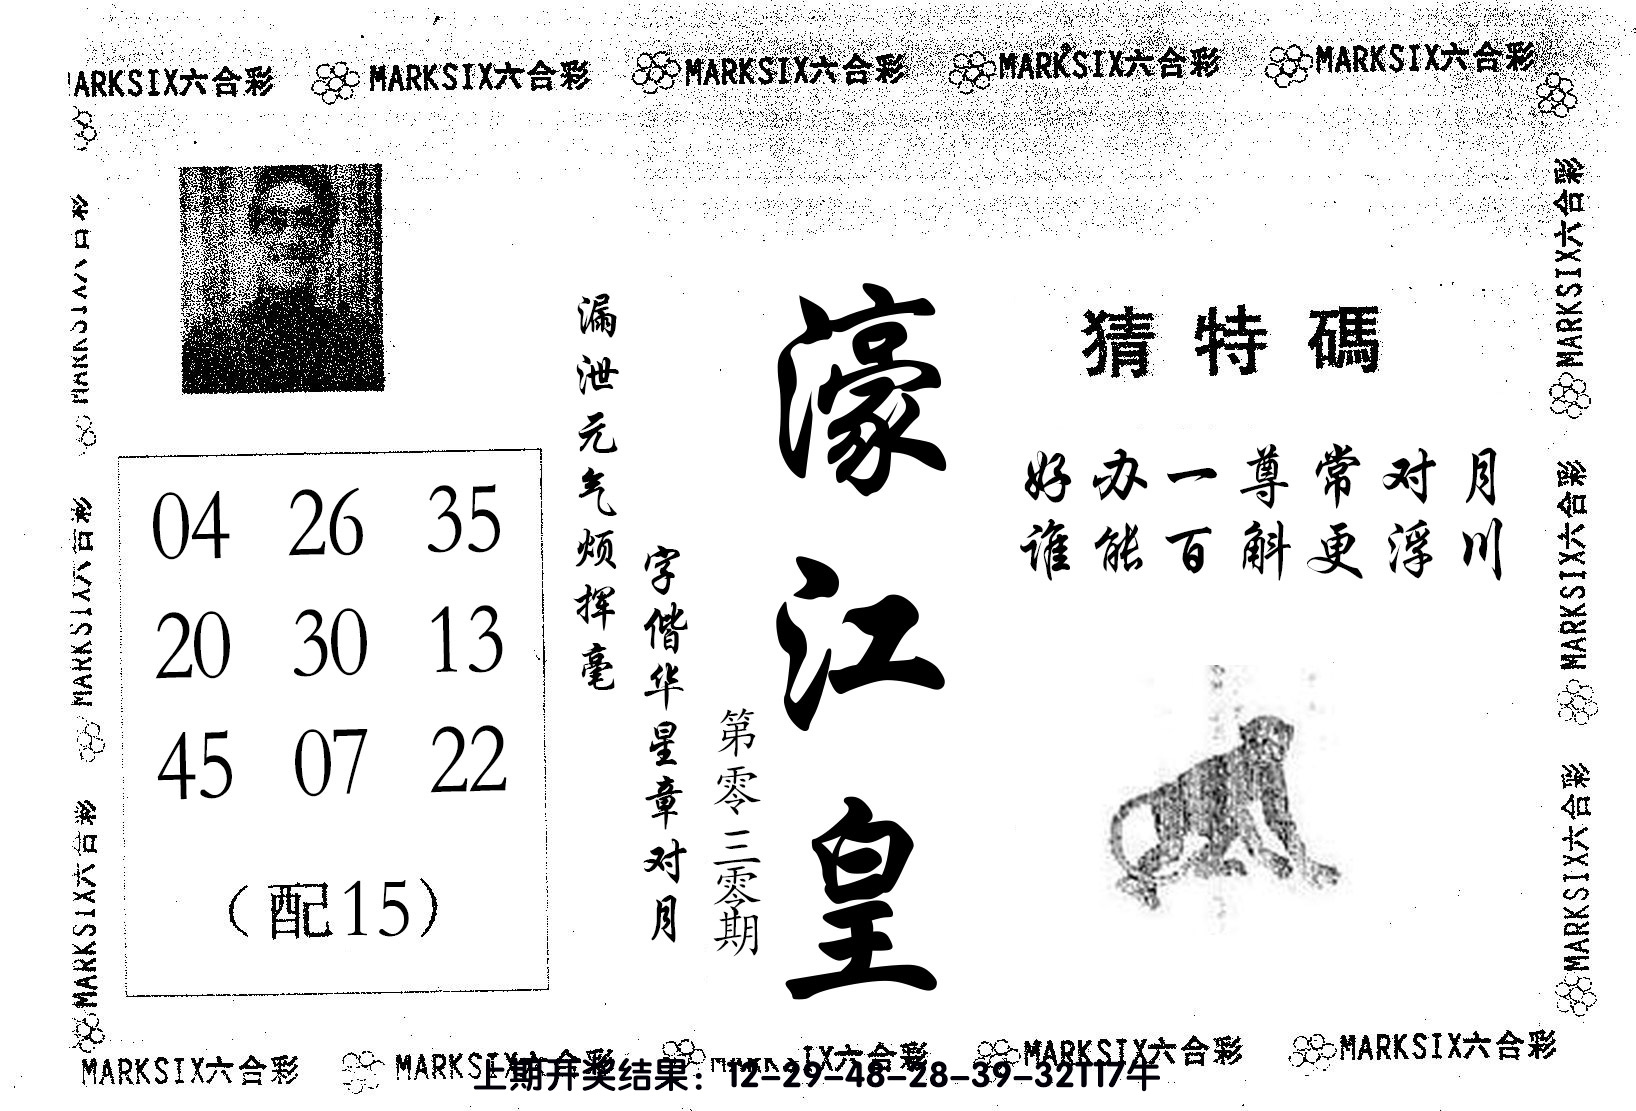 MARKSIX六合彩 MARKSIX六合彩 MARKSIX六合彩 MARKSIX六合彩 MARKSIX六合彩
MARKSIX六合彩
MARKSIX六合彩
MARKSIX六合彩
04 26 35
20 30 13
45 07 22
（配15）
漏泄元气烦挥毫
字偕华星章对月
第零三零期
濠江皇
猜特碼
好办一尊常对月
谁能百斛更浮川
MARKSIX六合彩
MARKSIX六合彩
MARKSIX六合彩
MARKSIX六合彩 MARKSIX六合彩 MARKSIX六合彩 MARKSIX六合彩 MARKSIX六合彩
上期开奖结果：12-29-48-28-39-32T17牛